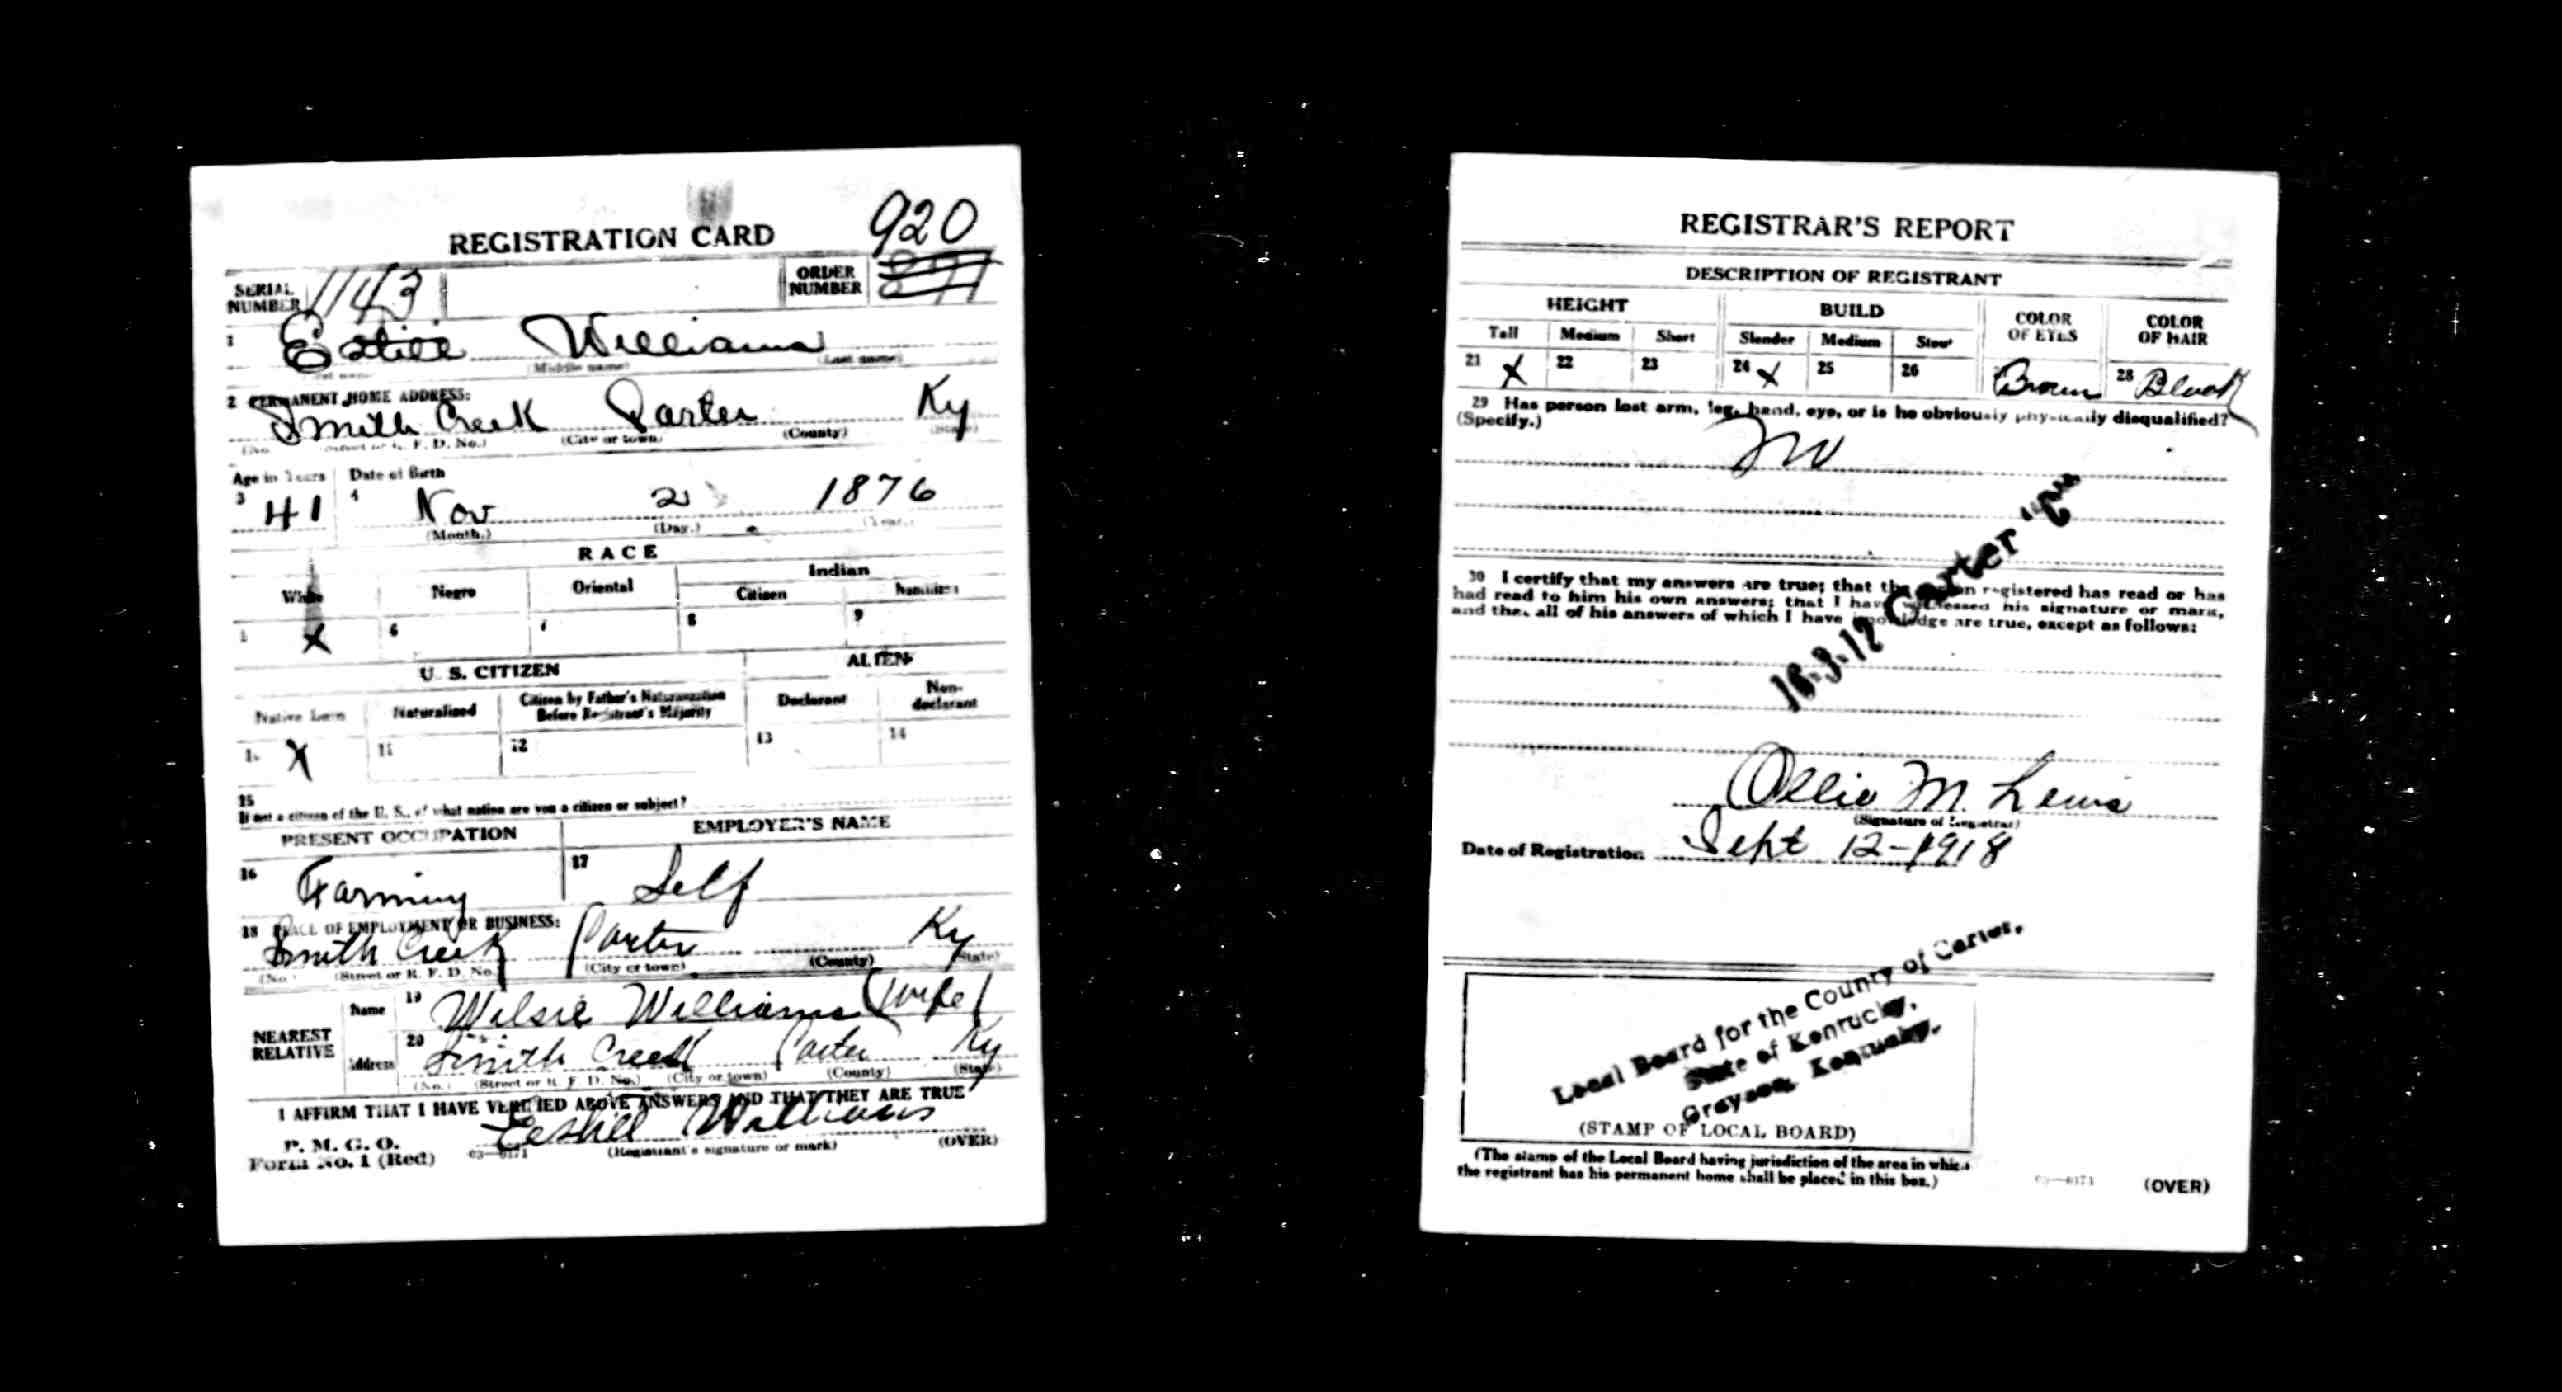 REGISTRATION CARD
920
SERIAL NUMBER 1143 ORDER NUMBER
1 Estill Williams
(Middle name) (Last name)
2 PERMANENT HOME ADDRESS:
Smith Creek Carter Ky
(No.) (Street or R. F. D. No.) (City or town) (County) (State)
Age in Years Date of Birth
3 41 4 Nov 2 1876
(Month.) (Day.) (Year.)
RACE
White Negro Oriental Indian
Citizen Noncitizen
5 X 6 7 8 9
U. S. CITIZEN ALIEN
Native Born Naturalized Citizen by Father's Naturalization Before Registrant's Majority Declarant Non-declarant
10 X 11 12 13 14
15
If not a citizen of the U. S., of what nation are you a citizen or subject?
PRESENT OCCUPATION EMPLOYER'S NAME
16 Farming 17 Self
18 PLACE OF EMPLOYMENT OR BUSINESS:
Smith Creek Carter Ky
(No.) (Street or R. F. D. No.) (City or town) (County) (State)
NEAREST RELATIVE
Name 19 Wilsie Williams (wife)
Address 20 Smith Creek Carter Ky
(No.) (Street or R. F. D. No.) (City or town) (County) (State)
I AFFIRM THAT I HAVE VERIFIED ABOVE ANSWERS AND THAT THEY ARE TRUE
P. M. G. O.
Form No. 1 (Red) 03—6171 Eestill Williams
(Registrant's signature or mark) (OVER)
REGISTRAR'S REPORT
DESCRIPTION OF REGISTRANT
HEIGHT BUILD COLOR OF EYES COLOR OF HAIR
Tall Medium Short Slender Medium Stout
21 X 22 23 24 X 25 26 Brown 28 Black
29 Has person lost arm, leg, hand, eye, or is he obviously physically disqualified?
(Specify.)
No
30 I certify that my answers are true; that the person registered has read or has
had read to him his own answers; that I have witnessed his signature or mark,
and that all of his answers of which I have knowledge are true, except as follows:
16-3-12 Carter "C"
Ollie M. Lewis
(Signature of Registrar)
Date of Registration Sept 12-1918
Local Board for the County of Carter,
State of Kentucky,
Grayson, Kentucky.
(STAMP OF LOCAL BOARD)
(The stamp of the Local Board having jurisdiction of the area in which
the registrant has his permanent home shall be placed in this box.)
03—6171 (OVER)